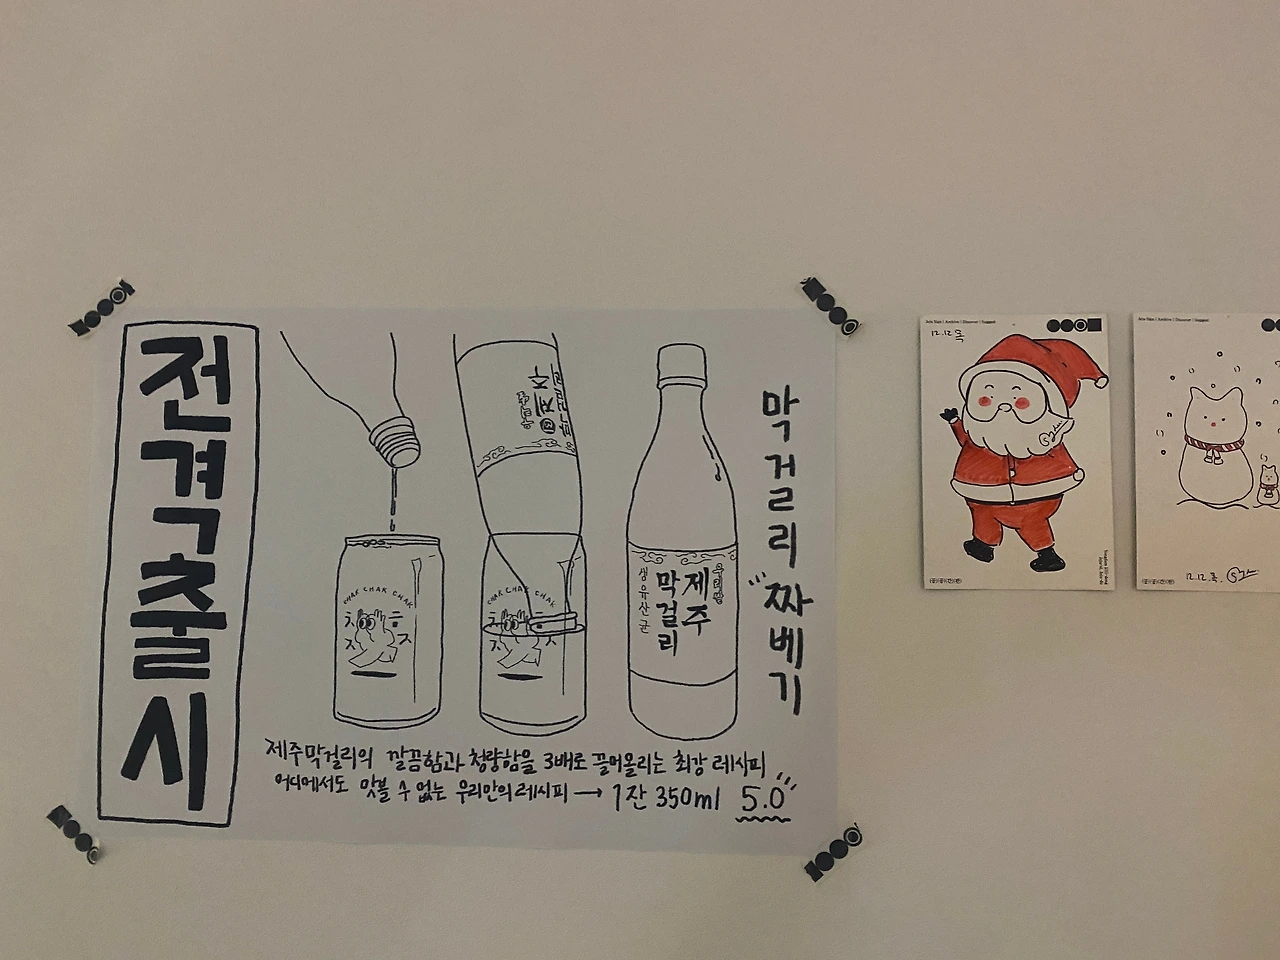 전격출시
CHAK CHAK CHAK
CHAK CHAK CHAK
제주
막걸리
우리쌀
생유산균
막걸리 "짜베기
제주막걸리의 깔끔함과 청량함을 3배로 끌어올리는 최강 레시피
어디에서도 맛볼 수 없는 우리만의 레시피 → 1잔 350ml 5.0"
12.12 목
12.12.목.